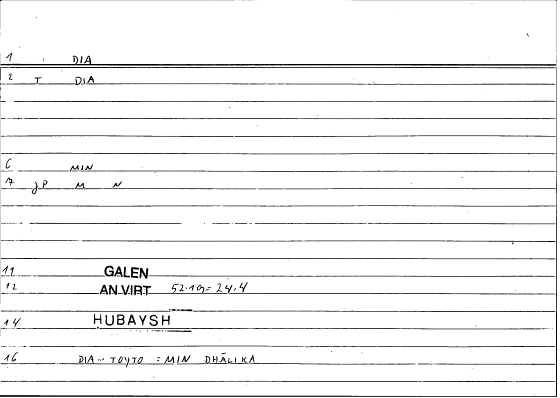 1 DIA
2 T DIA
6 MIN
7 JP M N
11 GALEN
12 AN VIRT 52.19 = 24.4
14 HUBAYSH
16 DIA TOYTO = MIN DHĀLIKA